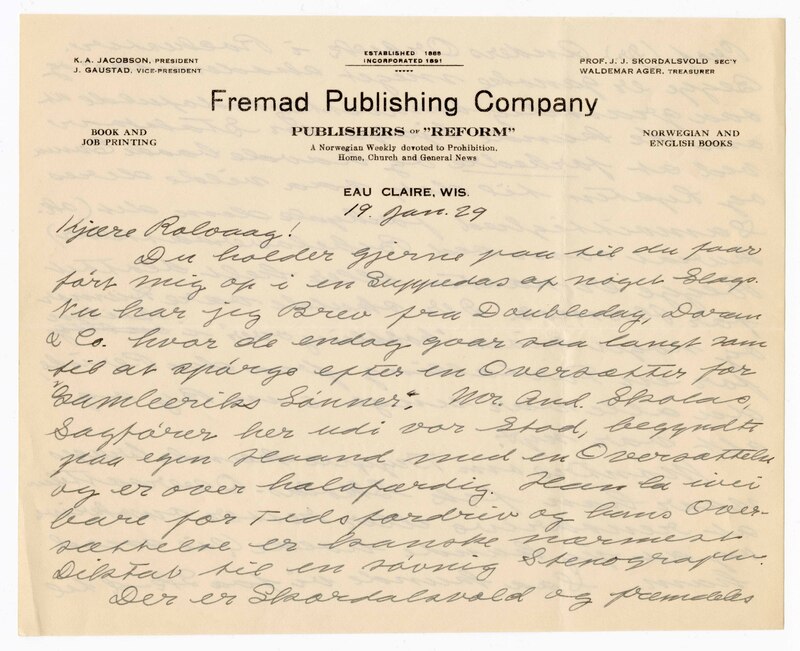 K. A. JACOBSON, PRESIDENT
J. GAUSTAD, VICE-PRESIDENT
ESTABLISHED 1868
INCORPORATED 1891
PROF. J. J. SKORDALSVOLD SEC'Y
WALDEMAR AGER, TREASURER
Fremad Publishing Company
BOOK AND
JOB PRINTING
PUBLISHERS OF "REFORM"
A Norwegian Weekly devoted to Prohibition,
Home, Church and General News
NORWEGIAN AND
ENGLISH BOOKS
EAU CLAIRE, WIS.
19. Jan. 29
Kjære Rolvaag!
Du holder gjerne paa til du faar
ført mig op i en Suppedas af noget Slags.
Nu har jeg Brev fra Doubleday, Doran
& Co. hvor de endog gaar saa langt som
til at spørge efter en Oversætter for
"Gamleeriks Sønner". Mr. And. Skolas,
Sagfører her udi vor Stad, begyndte
paa egen Haand med en Oversættelse
og er over halvfærdig. Han la ivei
bare for Tidsfordriv og hans Over-
sættelse er kanske nærmest
Diktat til en søvnig Stenograf.
Der er Skordalsvold og fremdeles